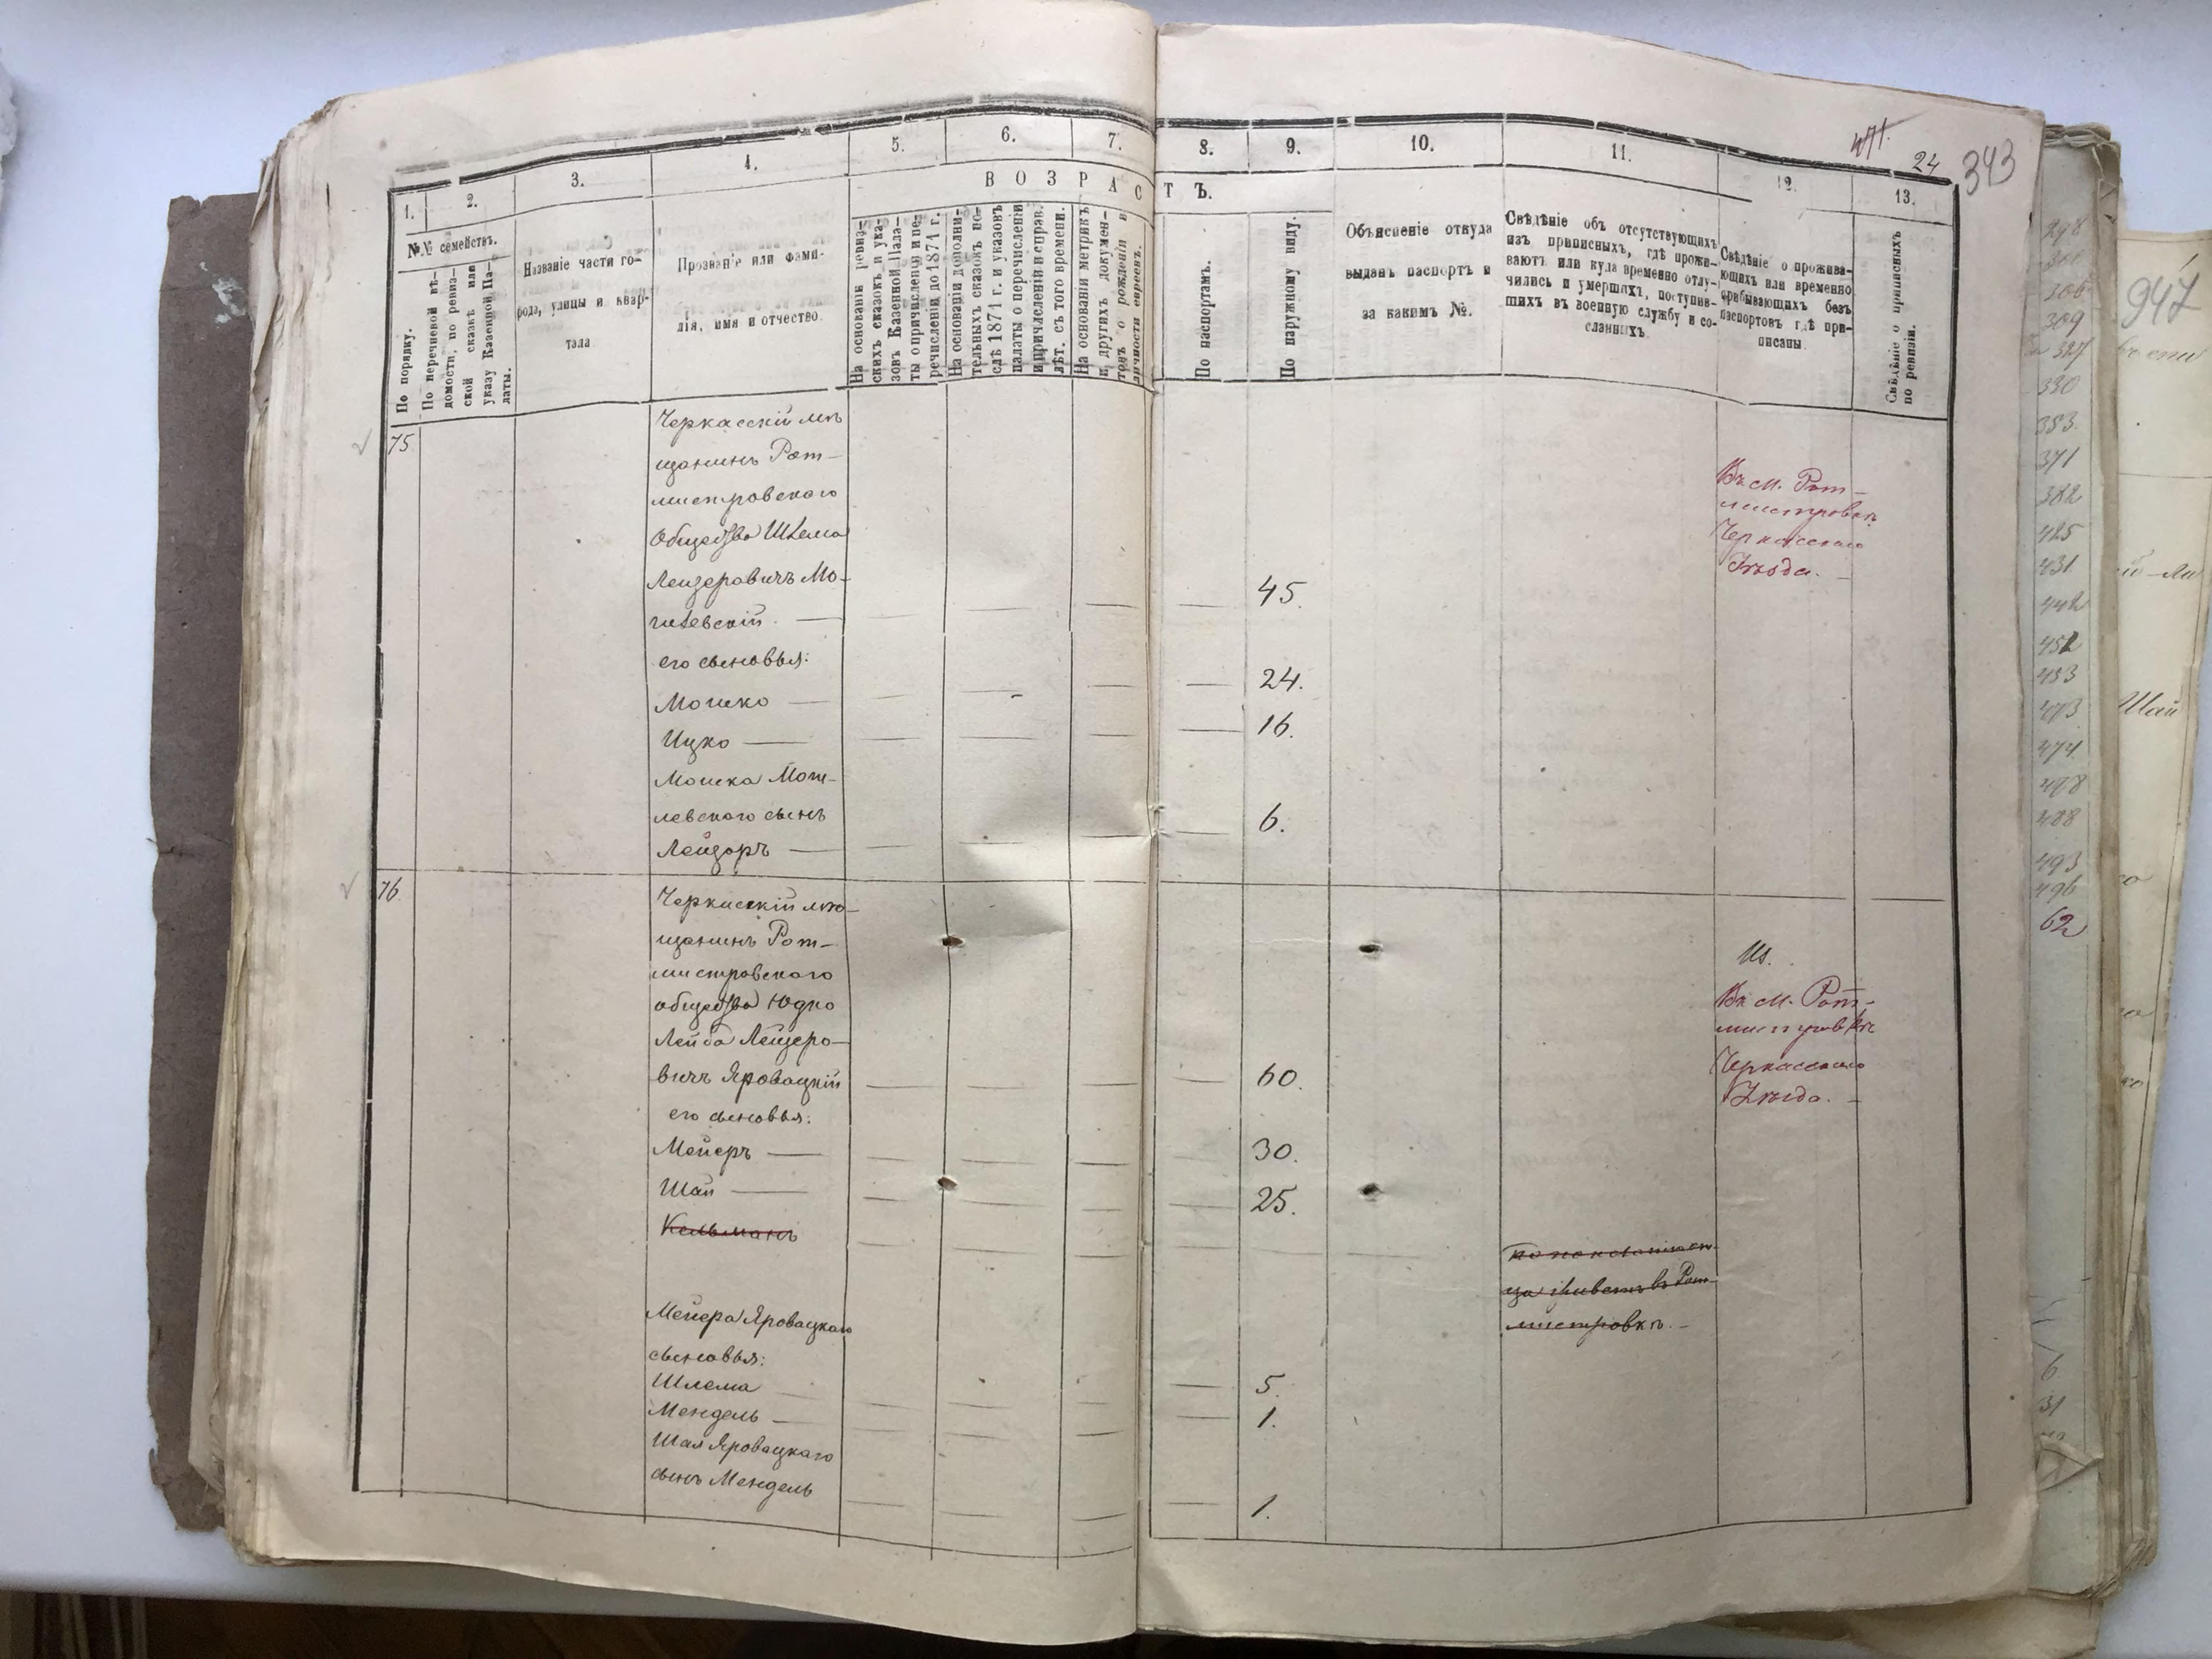 471.
24
343
1.
2.
3.
4.
5.
6.
7.
8.
9.
10.
11.
12.
13.
№№ семействъ.
В О З Р А С Т Ъ.
По порядку.
По перечневой вѣ-
домости, по ревиз-
ской сказкѣ или
указу Казенной Па-
латы.
Названіе части го-
рода, улицы и квар-
тала
Прозваніе или фами-
лія, имя и отчество.
На основаніи ревиз-
скихъ сказокъ и ука-
зовъ Казенной Пала-
ты о причисленіи и пе-
речисленіи до 1871 г.
На основаніи дополни-
тельныхъ сказокъ по-
слѣ 1871 г. и указовъ
палаты о перечисленіи
и причисленіи и справ.
лѣт. съ того времени.
На основаніи метрикъ
и другихъ докумен-
товъ о рожденіи и
личности евреевъ.
По паспортамъ.
По наружному виду.
Объясненіе откуда
выданъ паспортъ и
за какимъ №.
Свѣдѣніе объ отсутствующихъ
изъ приписныхъ, гдѣ прожи-
ваютъ или куда временно отлу-
чились и умершихъ, поступив-
шихъ въ военную службу и со-
сланныхъ.
Свѣдѣніе о прожива-
ющихъ или временно
прибывающихъ безъ
паспортовъ гдѣ при-
писаны.
Свѣдѣніе о приписныхъ
по ревизіи.
75
Черкасскій мѣ
щанинъ Рот-
мистровскаго
общества Шлема
Лейзеровичъ Мо-
гилевскій —
45.
его сыновья:
Мошко —
24.
Ицко —
16.
Мошка Моги-
левского сынъ
Лейзоръ —
6.
Въ м. Рот-
мистровкѣ
Черкасскаго
Уѣзда. —
76
Черкасскій мѣ-
щанинъ Рот-
мистровского
общества Юдко
Лейба Лейзеро-
вичъ Яровацкій
60.
его сыновья:
Мейеръ —
30.
Шаи —
25.
Кельманъ
по показанію от-
ца живетъ въ Рот-
мистровкѣ. —
Мейера Яровацкаго
сыновья:
Шлема
5.
Мендель —
1.
Шая Яровацкаго
сынъ Мендель
1.
Въ м. Рот-
мистровкѣ
Черкасскаго
Уѣзда. —
309
327
330
383
371
382
425
431
442
452
453
473
474
478
488
493
496
62
6
31
947
Шаи